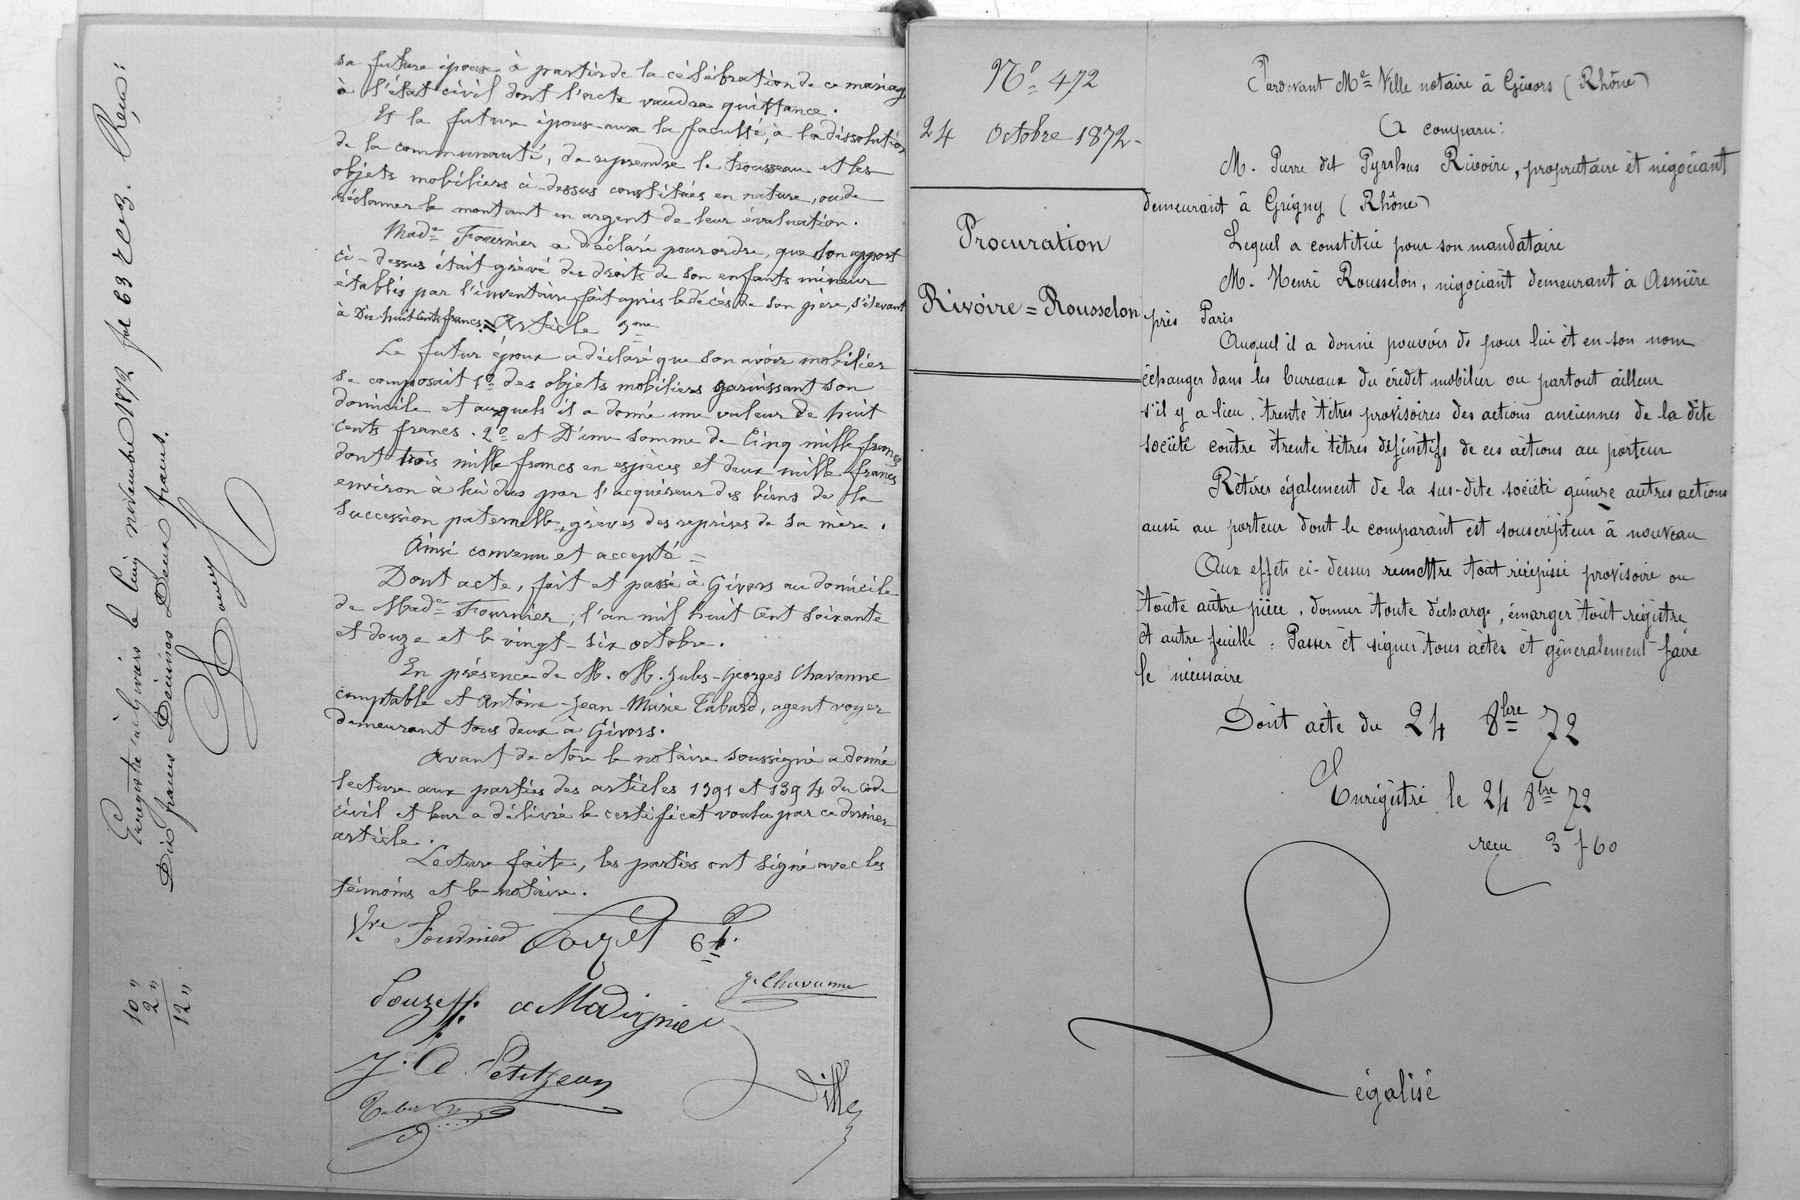 sa future épouse à partir de la célébration de ce mariage
à l'état civil dont l'acte vaudra quittance.
Et la future épouse aura la faculté, à la dissolution
de la communauté, de reprendre le trousseau et les
objets mobiliers ci-dessus constitués en nature, ou de
réclamer le montant en argent de leur évaluation.
Made Fournier a déclaré pour ordre, que son apport
ci-dessus était grèvé des droits de son enfants mineur
établis par l'inventaire fait après le décès de son père, s'élevant
à Dix-huit cents francs. = Article 5me
Le futur époux a déclaré que son avoir mobilier
se composait 1o des objets mobiliers garnissant son
domicile et auxquels il a donné une valeur de huit
cents francs. 2o et D'une somme de Cinq mille francs
dont trois mille francs en espèces et deux mille francs
environ à lui dus par l'acquéreur des biens de la
succession paternelle, grèvés des reprises de sa mère.
Ainsi convenu et accepté =
Dont acte, fait et passé à Givors au domicile
de Made Fournier, l'an mil huit cent soixante
et douze et le vingt-six octobre.
En présence de M. M. Jules-Georges Chavanne
comptable et Antoine-Jean-Marie Tabard, agent voyer
demeurant tous deux à Givors.
Avant de clore le notaire soussigné a donné
lecture aux parties des articles 1391 et 1394 du Code
civil et leur a délivré le certificat voulu par ce dernier
article.
Lecture faite, les parties ont signé avec les
témoins et le notaire.
Vve Fournier
J. Chavanne
J. C. Petitjean
Ville
Enregistré à Givors le cinq novembre 1872 fol 63 r c 2 3. Reçu:
Dix francs Décimes Deux francs.
10 "
2 "
12 "
No 472
24 Octobre 1872-
Procuration
Rivoire = Rousselon
Pardevant Me Ville notaire à Givors (Rhône)
A comparu:
M. Pierre dit Pyrrhus Rivoire, propriétaire et négociant
demeurant à Grigny (Rhône)
Lequel a constitué pour son mandataire
M. Henri Rousselon, négociant demeurant à Asnière
près Paris
Auquel il a donné pouvoir de pour lui et en son nom
échanger dans les bureaux du crédit mobilier ou partout ailleur
s'il y a lieu. trente titres provisoires des actions anciennes de la dite
société contre trente titres définitifs de ces actions au porteur
Retirer également de la sus-dite société quinze autres actions
aussi au porteur dont le comparant est souscripteur à nouveau
Aux effets ci-dessus remettre tout récépissé provisoire ou
toute autre pièce, donner toute décharge, émarger tout registre
et autre feuille; Passer et signer tous actes et généralement faire
le nécessaire
Dont acte du 24 8bre 72
Enregistré le 24 8bre 72
reçu 3 f 60
Légalisé